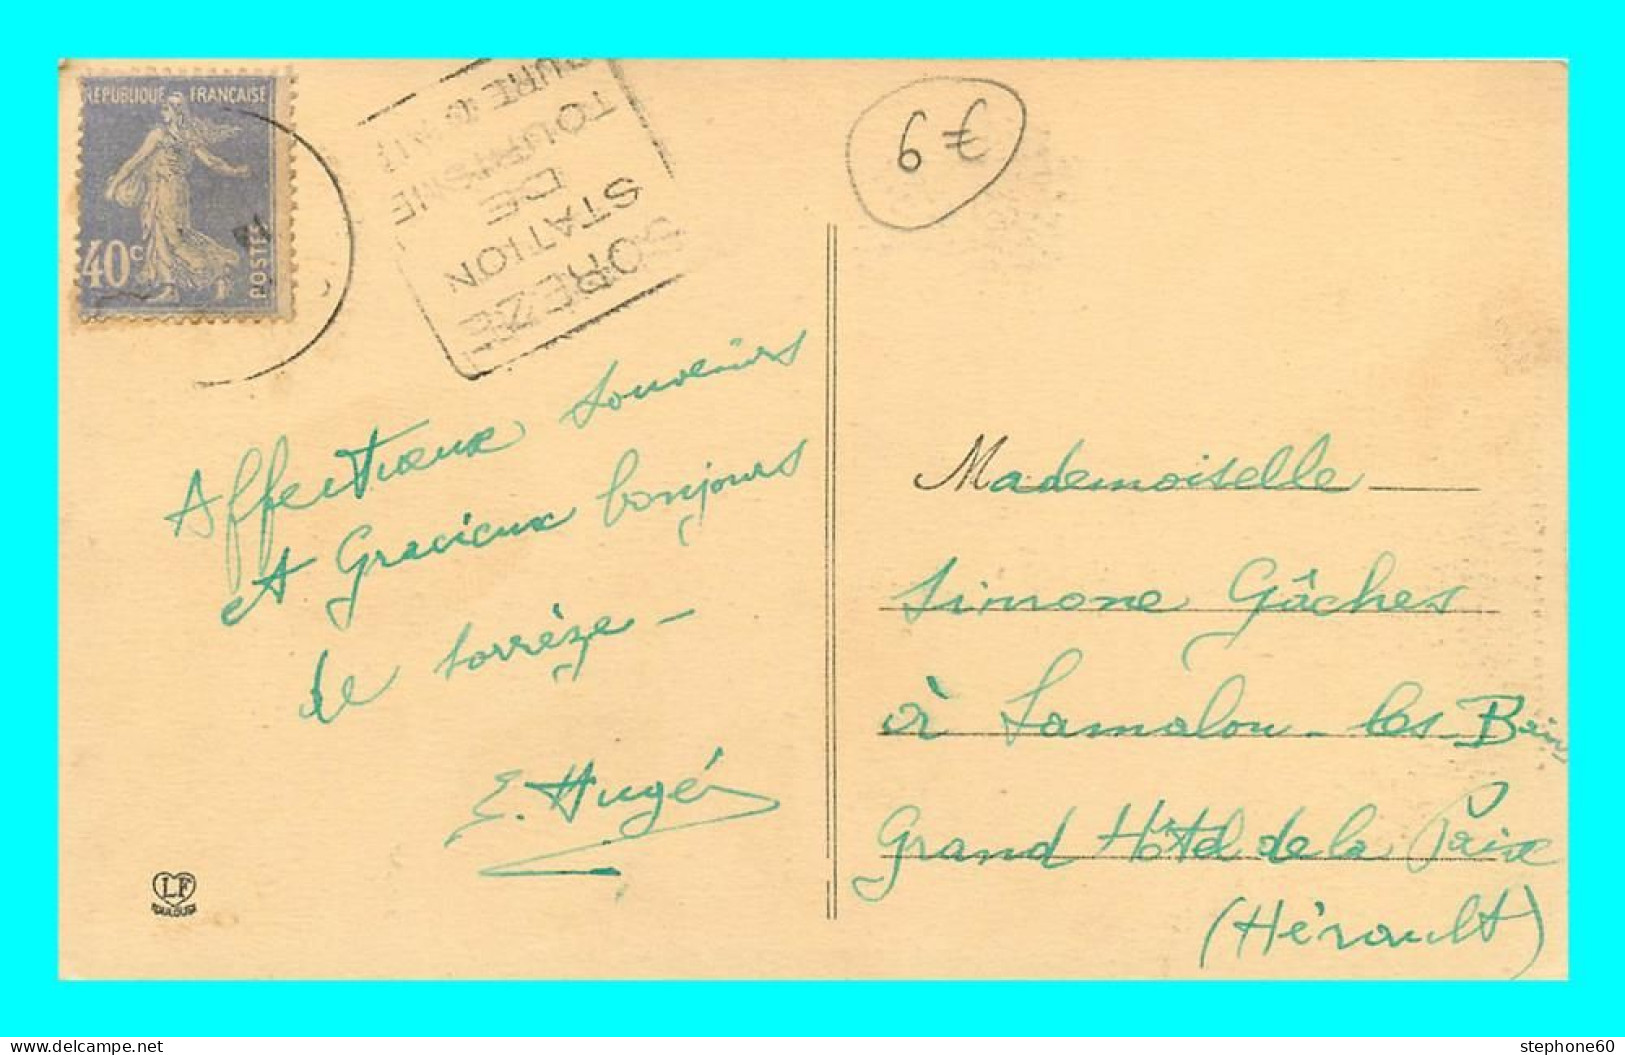 RÉPUBLIQUE FRANÇAISE
40c
POSTES
SOREZE
STATION
DE
TOURISME
CURE
6 €
Affectueux souvenirs
et Gracieux bonjours
de Sorrèze -
E. Hugé
LF
TOULOUSE
Mademoiselle
Simone Gâches
à Lamalou-les-Bains
Grand Hôtel de la Paix
(Hérault)
delcampe.net
stephone60